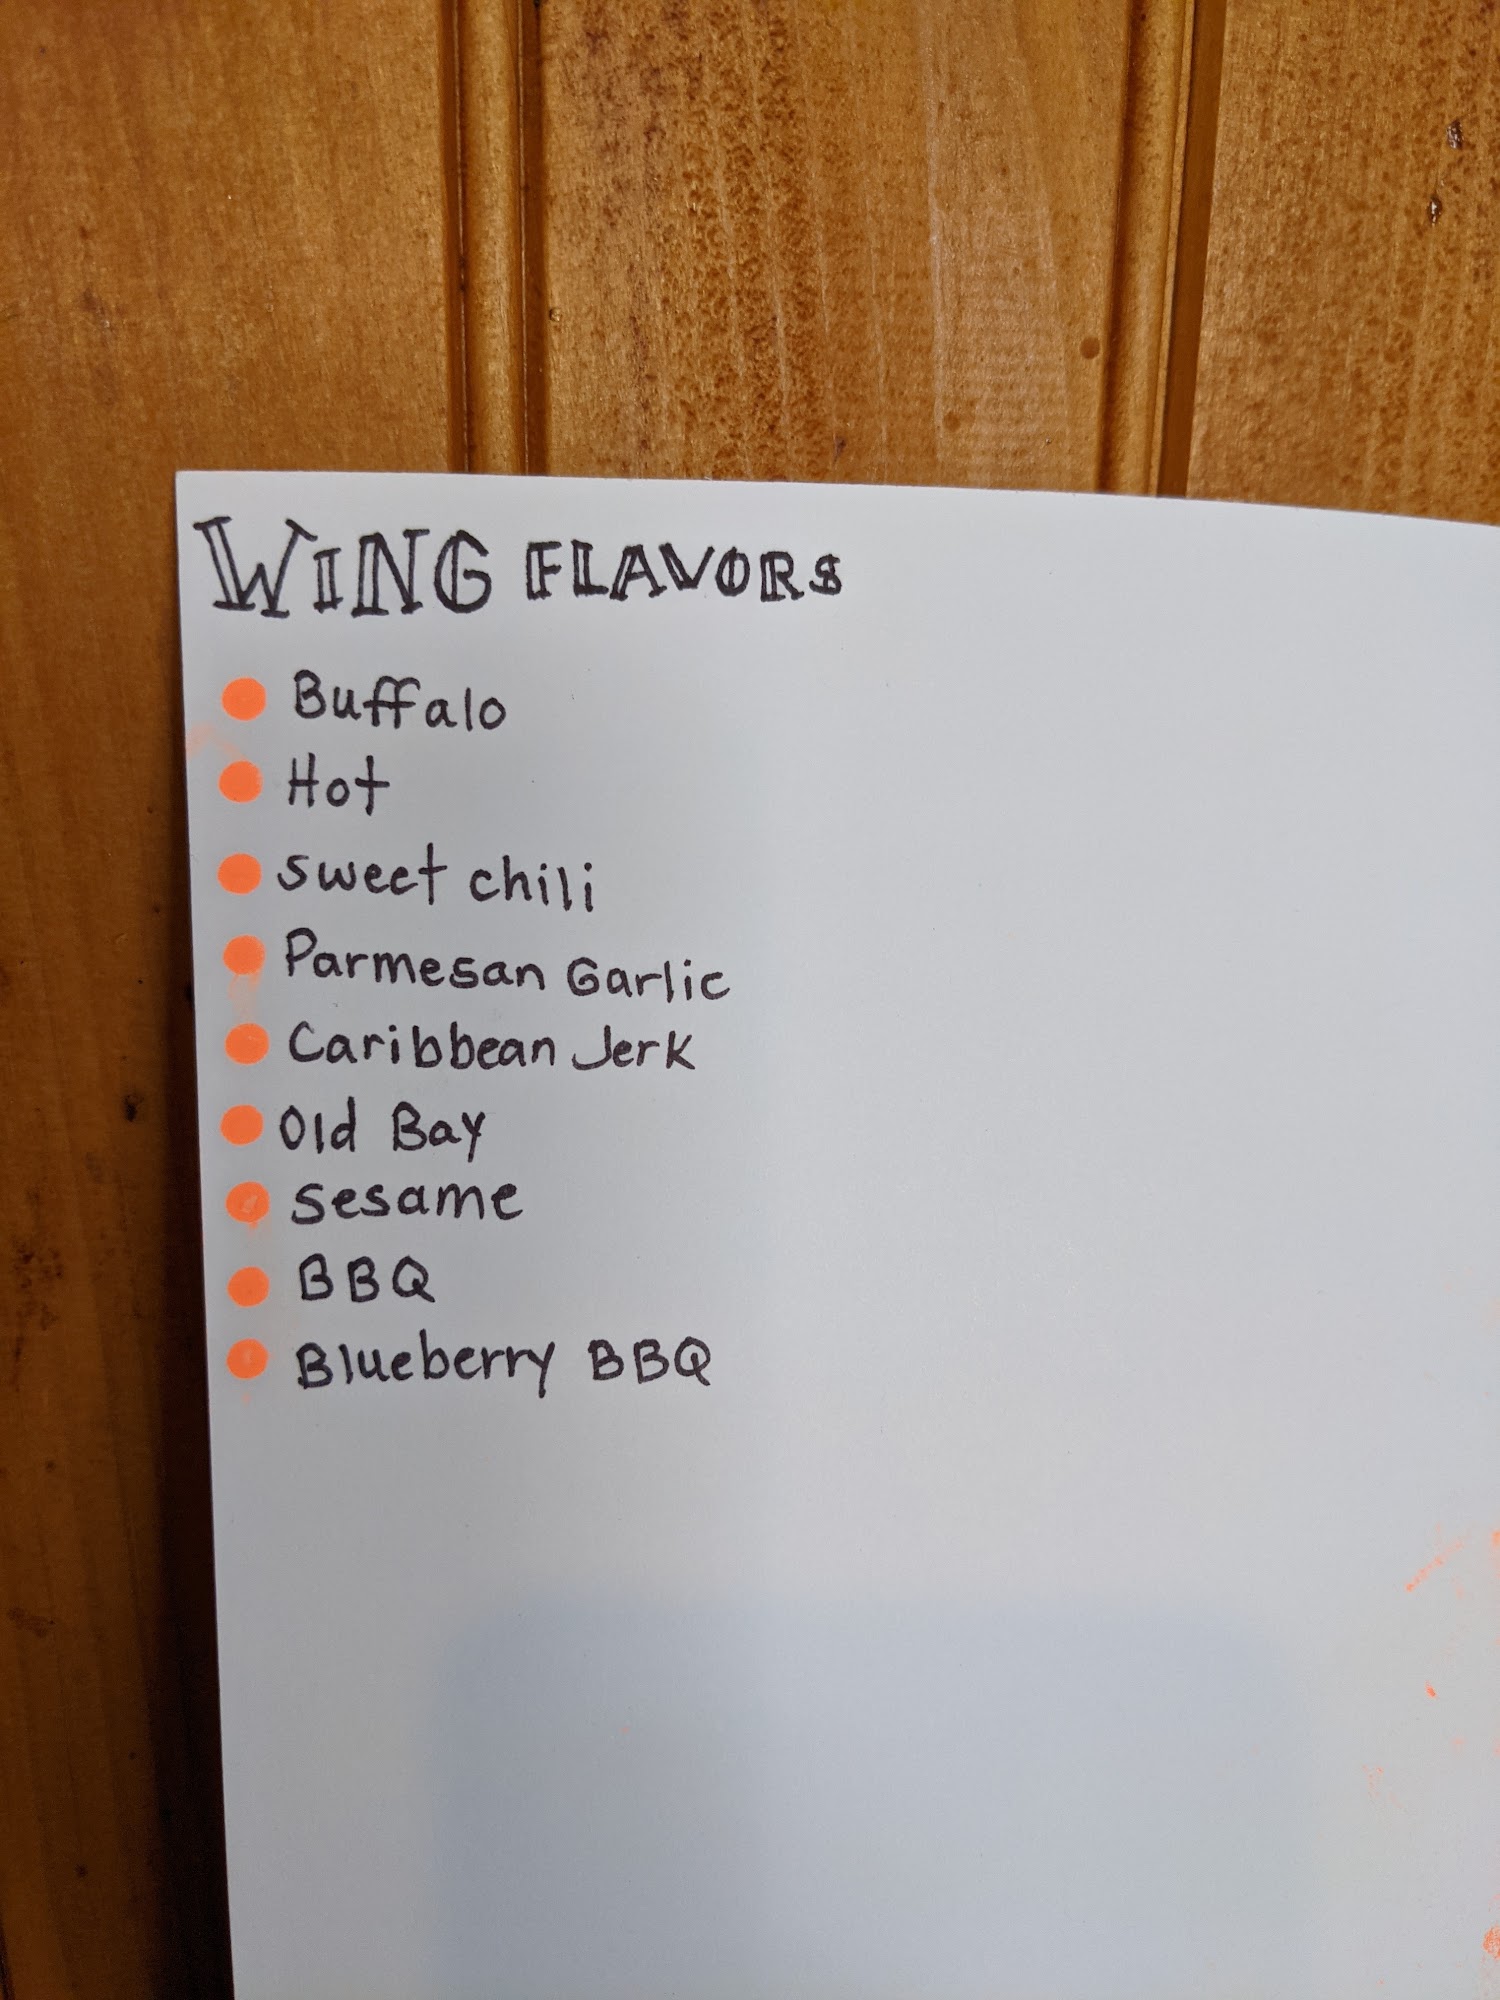 WING FLAVORS
Buffalo
Hot
sweet chili
Parmesan Garlic
Caribbean Jerk
Old Bay
Sesame
BBQ
Blueberry BBQ